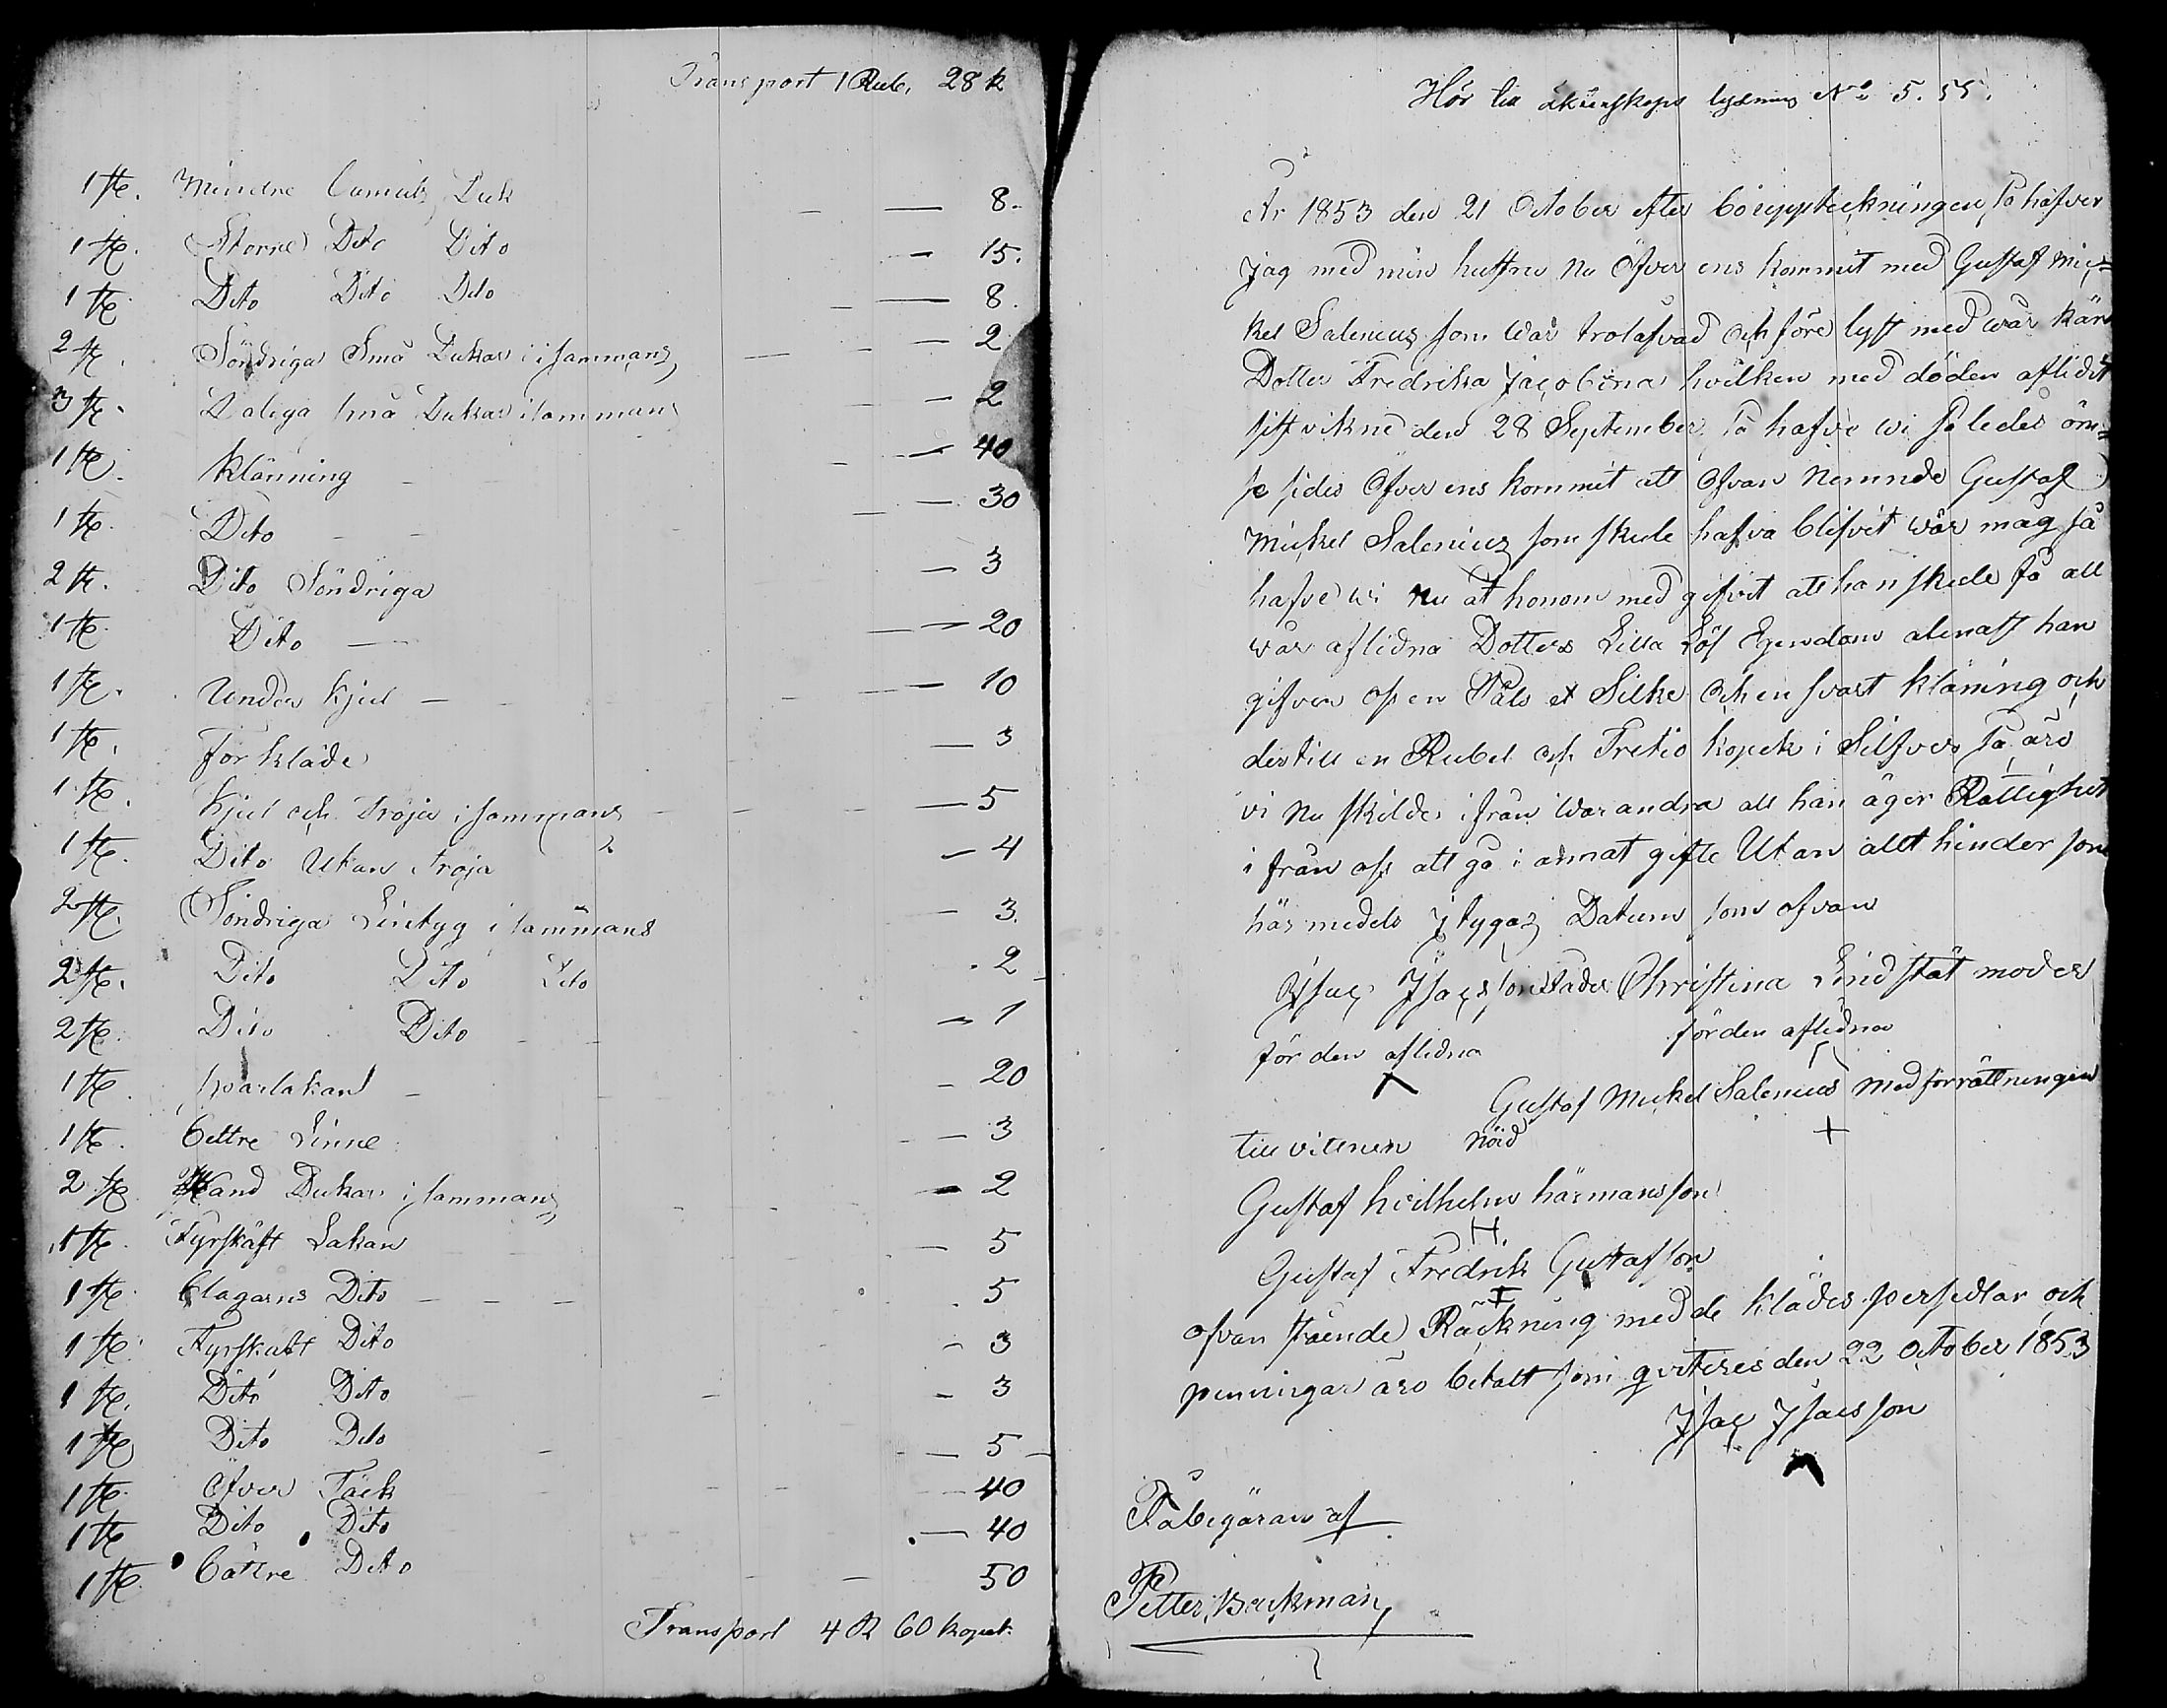 Transport 1 Rub, 28 k
1 st. Mindre Cumuls Duk — 8.
1 st. Störrre Dito Dito — 15.
1 st. Dito Dito Dito — 8.
2 st. Söndriga Små Dukar i sammans — 2
3 st. Daliga små Dukar i sammans — 2
1 st. Klänning — 40
1 st. Dito — 30
2 st. Dito Söndriga — 3
1 st. Dito — 20
1 st. Under Kjol — 10
1 st. Förkläde — 3
1 st. Kjol och Tröja i sammans — 5
1 st. Dito Utan Tröja — 4
2 st. Söndriga Lintyg i sammans — 3.
2 st. Dito Dito Dito - 2
2 st. Dito Dito — 1
1 st. sparlakan — 20
1 st. bettre Linne — 3
2 st. Hand Dukar i sammans — 2
1 st. Fyrskäft Lakan — 5
1 st. blagarns Dito — 5
1 st. Fyrskäft Dito — 3
1 st. Dito Dito — 3
1 st. Dito Dito — 5
1 st. Öfver Täck — 40
1 st. Dito Dito — 40
1 st. bättre Dito — 50
Transport 4 R 60 kopek.
Hör till äktenskaps lysning No 5. 55.
År 1853 den 21 October efter bouppteckningen, så hafver
jag med min hustru nu Öfver ens kommit med Gustaf Mic=
kel Salenius som war trolofvad och före lyst med wår kära
Dotter Fredrika Jacobina hvilken med döden aflidit
sistvikne den 28 September, så hafve wi således öm=
se sides Öfver ens kommit att Ofvan nemnde Gustaf
Mickel Salenius som skule hafva blifvit wår måg så
hafve wi nu åt honom med gifvit att han skule få all
wår aflidna Dotters Lilla Lös Egendom alenast han
gifver oss en Päls et Silke och en svart kläning och
der till en Rubel och Tretio kopek i Silfver, så äro
vi nu skilde ifrån warandra att han äger Rättighet
i från oss att gå i annat gifte Utan allt hinder som
här medels Jtygas Datum som ofvan
Jsac Jsacsson Fader Christina Lindståt moder
för den aflidna för den aflidna
Gustaf Mickel Salenius med förrättningen
till vitenen nöid +
Gustaf hvilhelm härmansson
H.
Gustaf Fredrik Gustafsson
ofvan stående Räckning med de kläder persedlar och
penningar äro betalt som qviteres den 22 October 1853
Jsac Jsacsson
På begäran af
Petter, Backman,